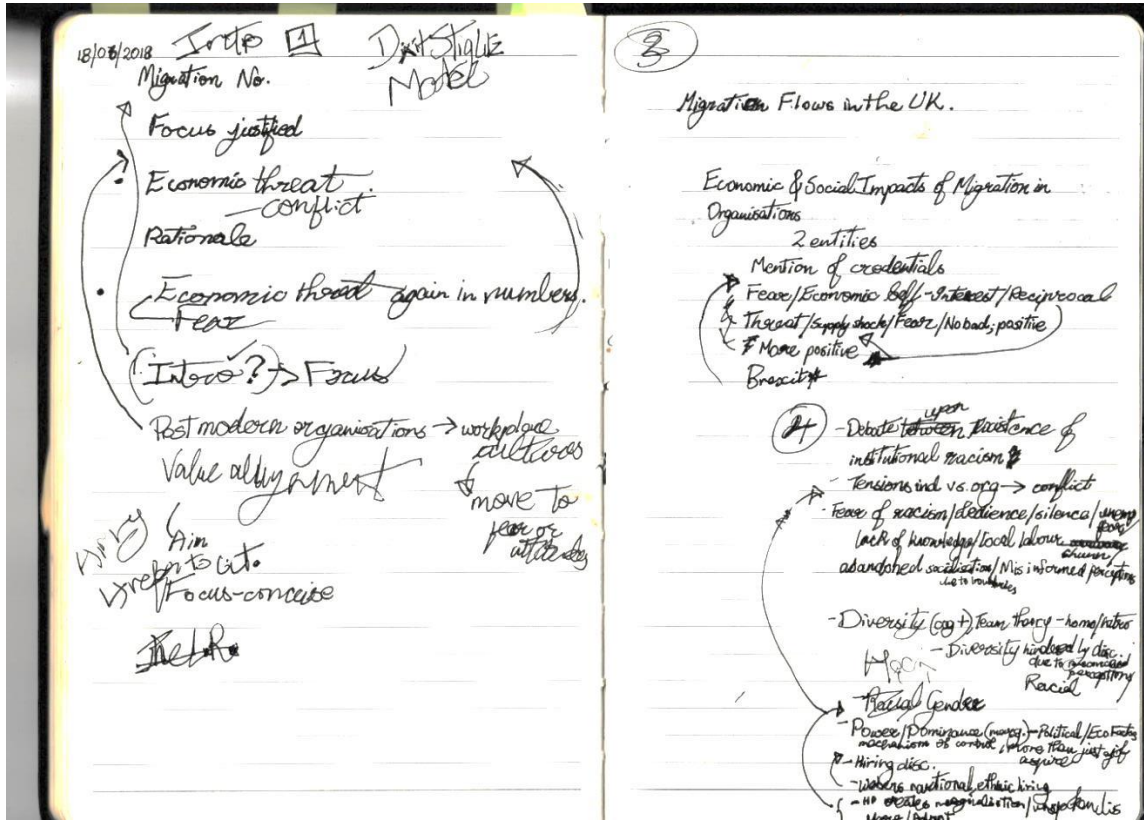 18/03/2018 Intro 1 Dixit Stiglitz
Model
Migration No.
Focus justified
Economic threat
— conflict
Rationale
Economic threat again in numbers.
Fear
(Intro?) → Focus
Post modern organisations → workplace
cultures
Value
move to
fear or
attitudes
Aim
refer to Lit.
Focus-concise
3
Migration Flows in the UK.
Economic & Social Impacts of Migration in
Organisations
2 entities
Mention of credentials
Fear/Economic Self-Interest/Reciprocal
Threat/Supply shock/Fear/No bad; positive
More positive
Brexit
4 - Debate between upon Existence of
institutional racism
- Tensions ind vs. org → conflict
- Fear of racism/silence/
lack of knowledge/Local labour
abandoned socialisation/Mis informed perceptions
due to
- Diversity (org +), Team theory - homo/hetro
- Diversity hindered by disc.
due to perceptions
Racial
- Racial Gender
- Power/Dominance - Political/Eco Factors
mechanisms of control, more than just
aspire
- Hiring disc.
- Webers national, ethnic living
- creates marginalisation/